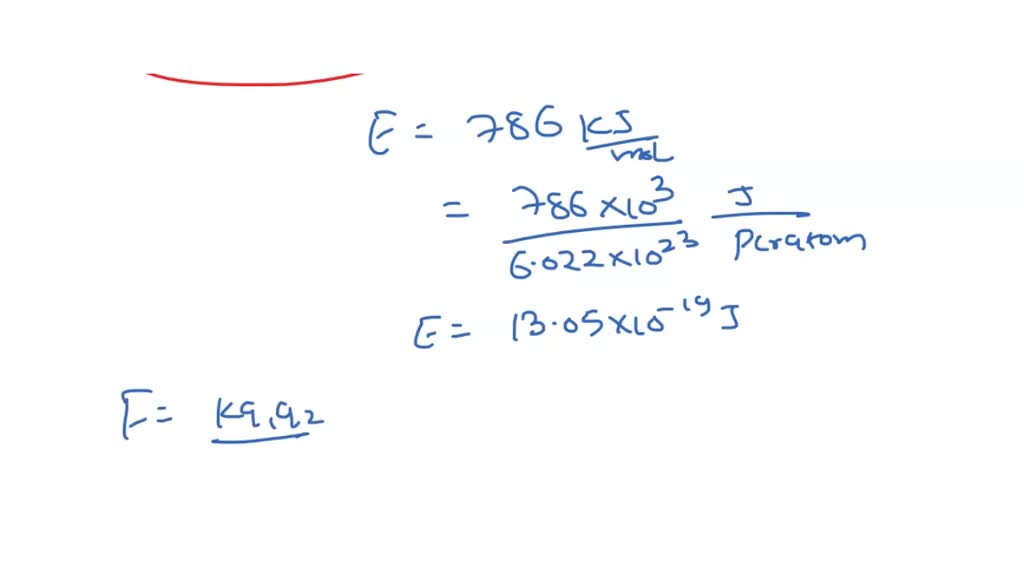 E = 786 KJ/mol
= 786 ×10³ / 6.022×10²³ J / Peratom
E = 13.05×10⁻¹⁹ J
E = Kq₁q₂